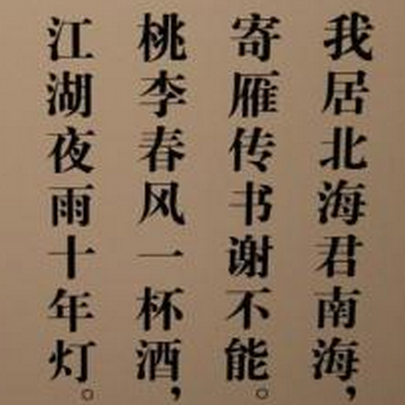 我居北海君南海，
寄雁传书谢不能。
桃李春风一杯酒，
江湖夜雨十年灯。